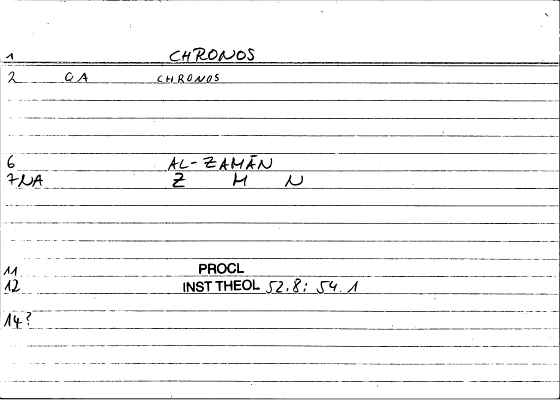 1 CHRONOS
2 GA CHRONOS
6 AL-ZAMĀN
7 NA Z M N
11 PROCL
12 INST THEOL 52.8; 54.1
14?